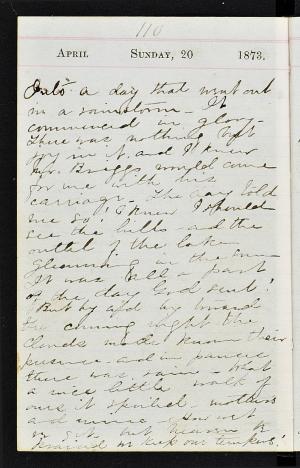 110
APRIL SUNDAY, 20 1873.
a day that went out
in a rainstorm - It
commenced in glory -
There was nothing left
joy in it and I knew
Mr. Briggs would come
for me with his
carriage - The day told
me so! I knew I should
see the hills - and the
outlet of the lake
gleaming in the sun
It was all a part
of the day God sent!
But by and by toward
the coming night the
clouds made known their
presence - and in
there was rain - What
a nice little walk of
ours it spoiled mothers
and mine - How wet
we got but
we kept our tempers!